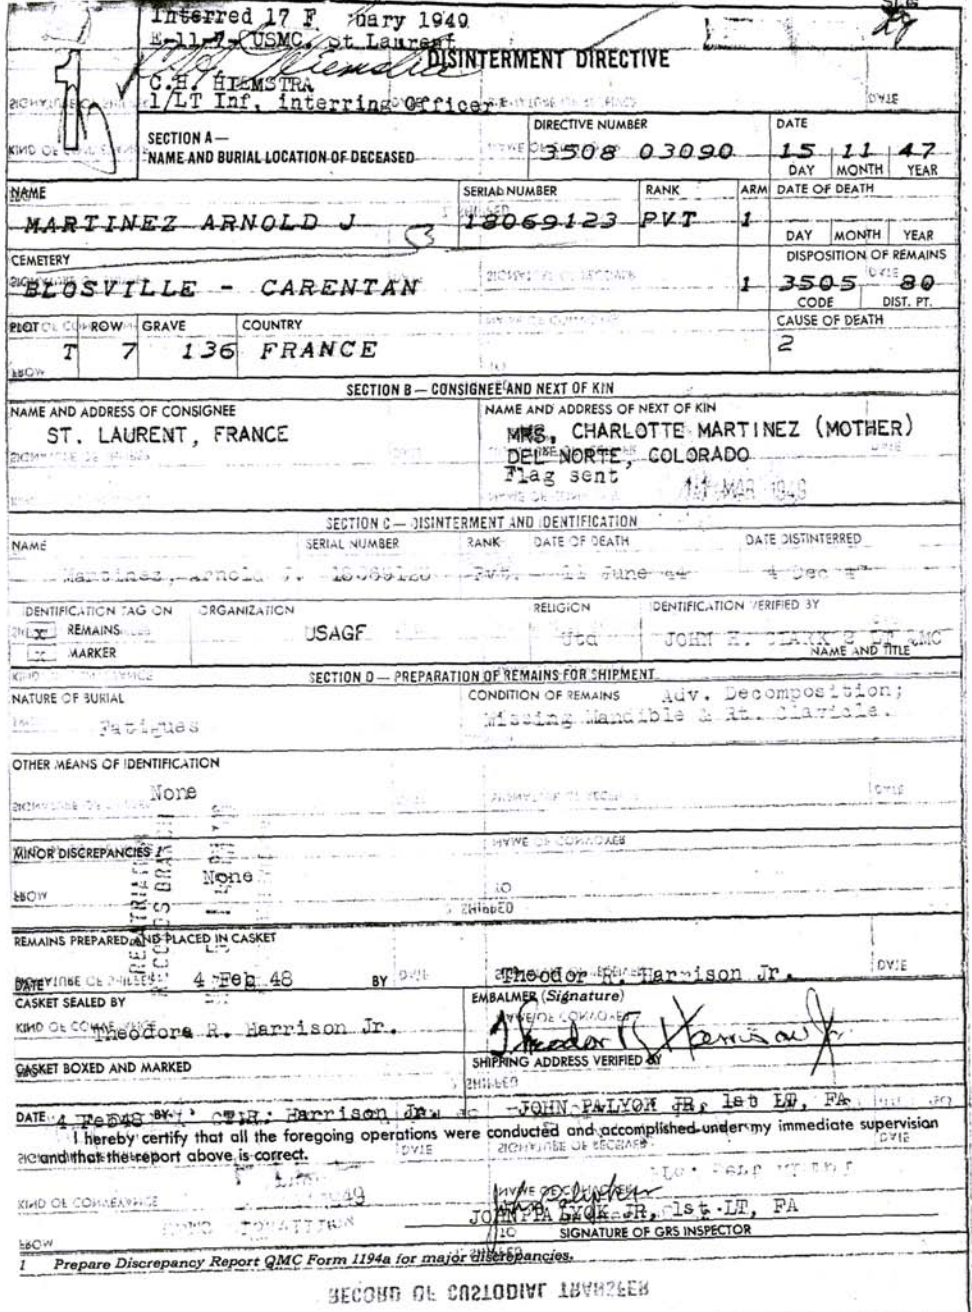 Interred 17 F uary 1949
E-11-7 (USMC, St Laurent
DISINTERMENT DIRECTIVE
C.H. HIEMSTRA
1/LT Inf, interring Officer
SECTION A—
NAME AND BURIAL LOCATION OF DECEASED
DIRECTIVE NUMBER
3508 03090
DATE
15 11 47
DAY MONTH YEAR
NAME
MARTINEZ ARNOLD J
SERIAL NUMBER
18069123
RANK
PVT
ARM
1
DATE OF DEATH
DAY MONTH YEAR
CEMETERY
BLOSVILLE - CARENTAN
1
DISPOSITION OF REMAINS
3505 80
CODE DIST. PT.
PLOT ROW GRAVE COUNTRY
T 7 136 FRANCE
CAUSE OF DEATH
2
SECTION B — CONSIGNEE AND NEXT OF KIN
NAME AND ADDRESS OF CONSIGNEE
ST. LAURENT, FRANCE
NAME AND ADDRESS OF NEXT OF KIN
MRS. CHARLOTTE MARTINEZ (MOTHER)
DEL NORTE, COLORADO
Flag sent
MAR 1949
SECTION C — DISINTERMENT AND IDENTIFICATION
NAME SERIAL NUMBER RANK DATE OF DEATH DATE DISTINTERRED
Martinez, Arnold J. Pvt. 11 June 44 4 Dec 47
IDENTIFICATION TAG ON
x REMAINS
x MARKER
ORGANIZATION
USAGF
RELIGION
IDENTIFICATION VERIFIED BY
JOHN H. CLARK 2 LT QMC
NAME AND TITLE
SECTION D — PREPARATION OF REMAINS FOR SHIPMENT
NATURE OF BURIAL
Fatigues
CONDITION OF REMAINS Adv. Decomposition;
Missing Mandible & Rt. Clavicle.
OTHER MEANS OF IDENTIFICATION
None
MINOR DISCREPANCIES 1
None
REMAINS PREPARED AND PLACED IN CASKET
DATE 4 Feb 48 BY Theodor R. Harrison Jr.
CASKET SEALED BY
Theodore R. Harrison Jr.
EMBALMER (Signature)
Theodor R Harrison Jr
CASKET BOXED AND MARKED
SHIPPING ADDRESS VERIFIED BY
DATE 4 Feb48 BY Harrison Jr. JOHN PALYOK JR, 1st LT, FA
I hereby certify that all the foregoing operations were conducted and accomplished under my immediate supervision
and that the report above is correct.
JOHN PALYOK JR, 1st LT, FA
SIGNATURE OF GRS INSPECTOR
1 Prepare Discrepancy Report QMC Form 1194a for major discrepancies.
RECORD OF CUSTODIAL TRANSFER